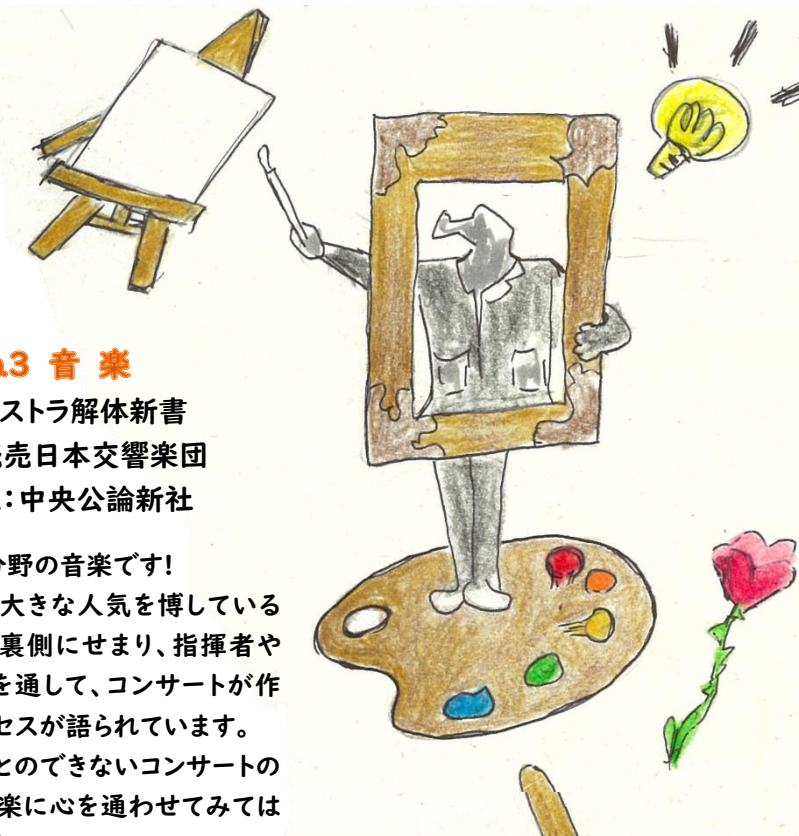 3 音 楽
ストラ解体新書
売日本交響楽団
：中央公論新社
分野の音楽です！
大きな人気を博している
裏側にせまり、指揮者や
を通して、コンサートが作
セスが語られています。
とのできないコンサートの
楽に心を通わせてみては